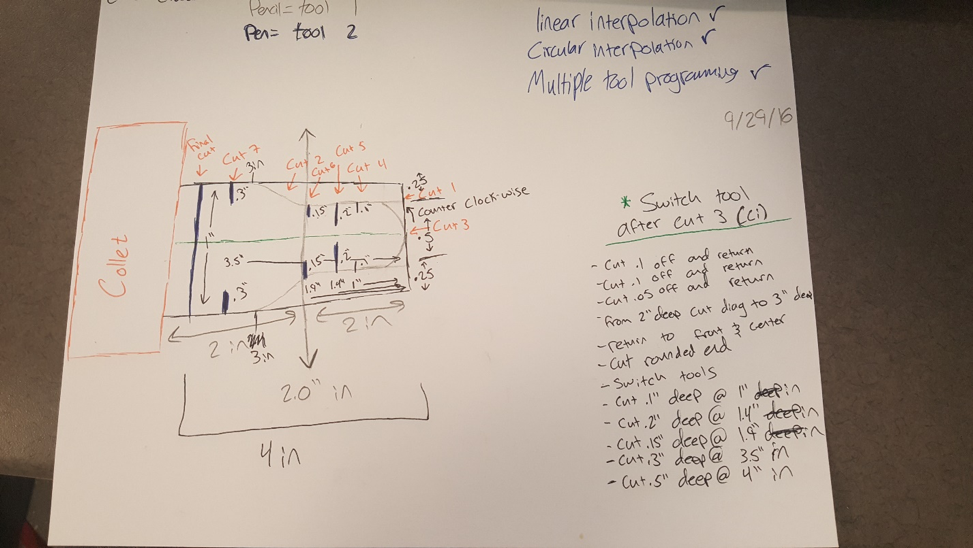 Pencil = tool 1
Pen = tool 2
linear interpolation ✓
Circular interpolation ✓
Multiple tool programming ✓
9/29/16
Collet
Final cut
Cut 7
3in
Cut 2
Cut 6
Cut 5
Cut 4
.25
Cut 1
Counter clock-wise
Cut 3
.5
.25
.3"
.15
.2
.1"
1"
3.5"
.15"
.2
.1"
.3"
1.9"
1.4"
1"
2 in
3 in
2 in
2.0" in
4 in
* Switch tool
after cut 3 (ci)
- Cut .1 off and return
- Cut .1 off and return
- Cut .05 off and return
- from 2" deep cut diag to 3" deep
- return to front & center
- Cut rounded end
- Switch tools
- Cut .1" deep @ 1" deep in
- Cut .2" deep @ 1.4" deep in
- Cut .15" deep @ 1.9" deep in
- Cut .3" deep @ 3.5" in
- Cut .5" deep @ 4" in